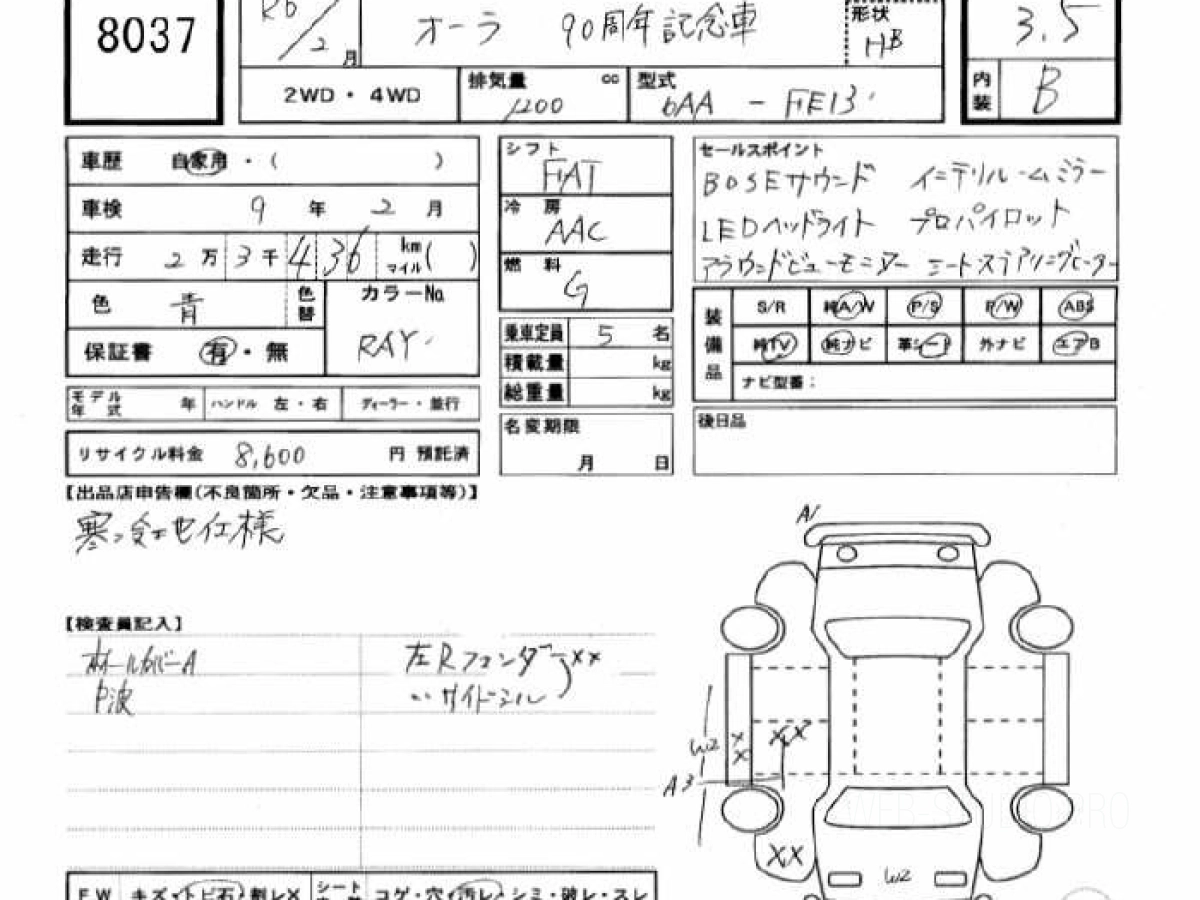 8037
R6/2 月
オーラ 90周年記念車
形状 HB
3.5
2WD・4WD
排気量 cc 1200
型式 6AA - FE13
内装 B
車歴 自家用・( )
車検 9年 2月
走行 2万3千436 km マイル( )
色 青 色替
カラーNo. RAY
保証書 有・無
モデル年式 年 ハンドル 左・右 ディーラー・並行
リサイクル料金 8,600 円 預託済
シフト FAT
冷房 AAC
燃料 G
乗車定員 5 名
積載量 kg
総重量 kg
名変期限 月 日
セールスポイント
BOSEサウンド インテリルームミラー
LEDヘッドライト プロパイロット
アラウンドビューモニター シートステアリングヒーター
装備品 S/R 純A/W P/S P/W ABS
純TV 純ナビ 革シート 外ナビ エアB
ナビ型番:
後日品
【出品店申告欄(不良箇所・欠品・注意事項等)】
仕様
【検査員記入】
ホイールカバーA 左Rフェンダー XX
中波 〃サイドシル
A1
W2 XX XX
A3
XX W2
FW キズ・トビ石・割レX シート コゲ・穴・汚レ・シミ・破レ・スレ